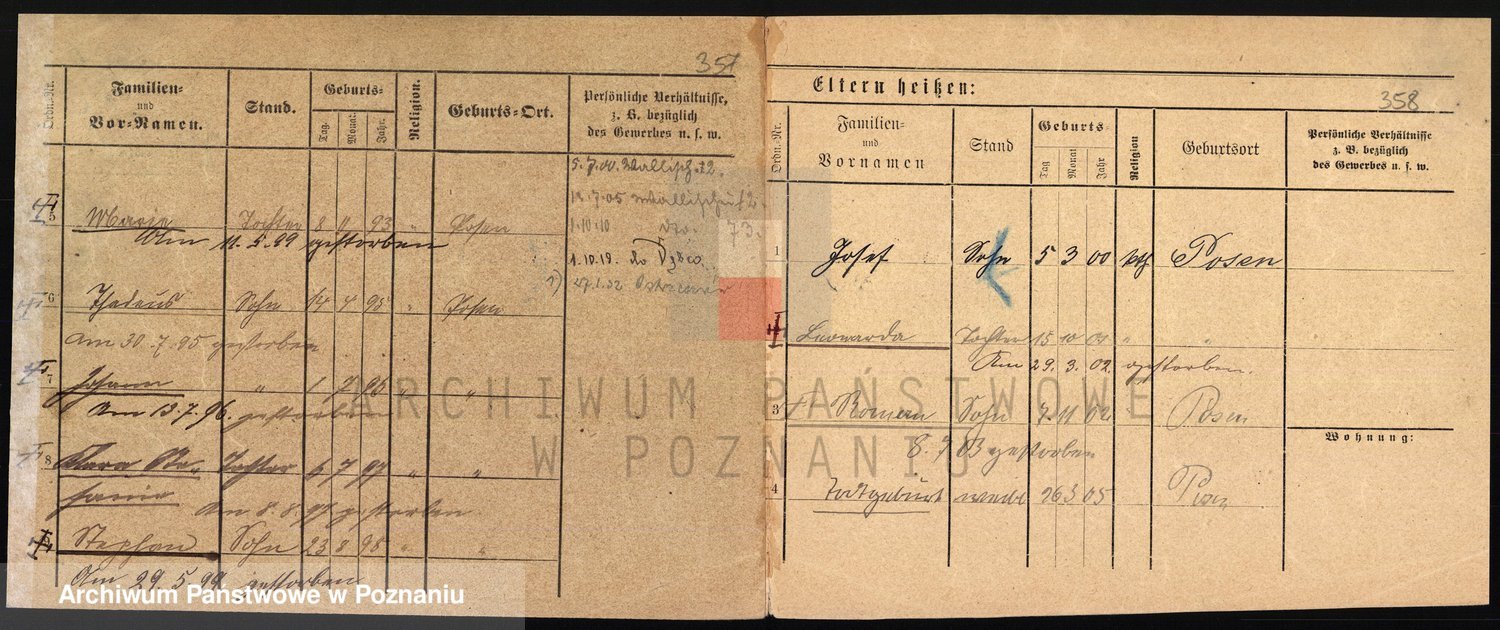 357
Ordn.-Nr.
Familien-
und
Vor-Namen.
Stand.
Geburts-
Tag.
Monat.
Jahr.
Religion.
Geburts-Ort.
Persönliche Verhältnisse,
z. B. bezüglich
des Gewerbes u. s. w.
5.7.00. Wallisch. 12.
5 Maria Tochter 8 11 93 " Posen
Am 11.5.99 gestorben
1.10.10 dto.
1.10.19. do
6 Thadeus Sohn 14 4 95 " Posen
am 30.7.95 gestorben
7 Johann " 1 7 96 " "
Am 13.7.96. gestorben
8 Klara Ste- Tochter 6 7 97 " "
fania
Am 8.8.97 gestorben
Stephan Sohn 23 8 98 " "
Am 29.5.99 gestorben
358
Eltern heißen:
Ordn.-Nr.
Familien-
und
Vornamen
Stand
Geburts-
Tag
Monat
Jahr
Religion
Geburtsort
Persönliche Verhältnisse
z. B. bezüglich
des Gewerbes u. s. w.
73.
1 Josef Sohn 5 3 00 kth Posen
Leonarda Tochter 15 10 01 " "
Am 29.3.02. gestorben.
3 Roman Sohn 7 11 02 Posen
8.7 03 gestorben
Wohnung:
4 Todtgeburt weibl 26 3 05 Posen
ARCHIWUM PAŃSTWOWE
W POZNANIU
Archiwum Państwowe w Poznaniu